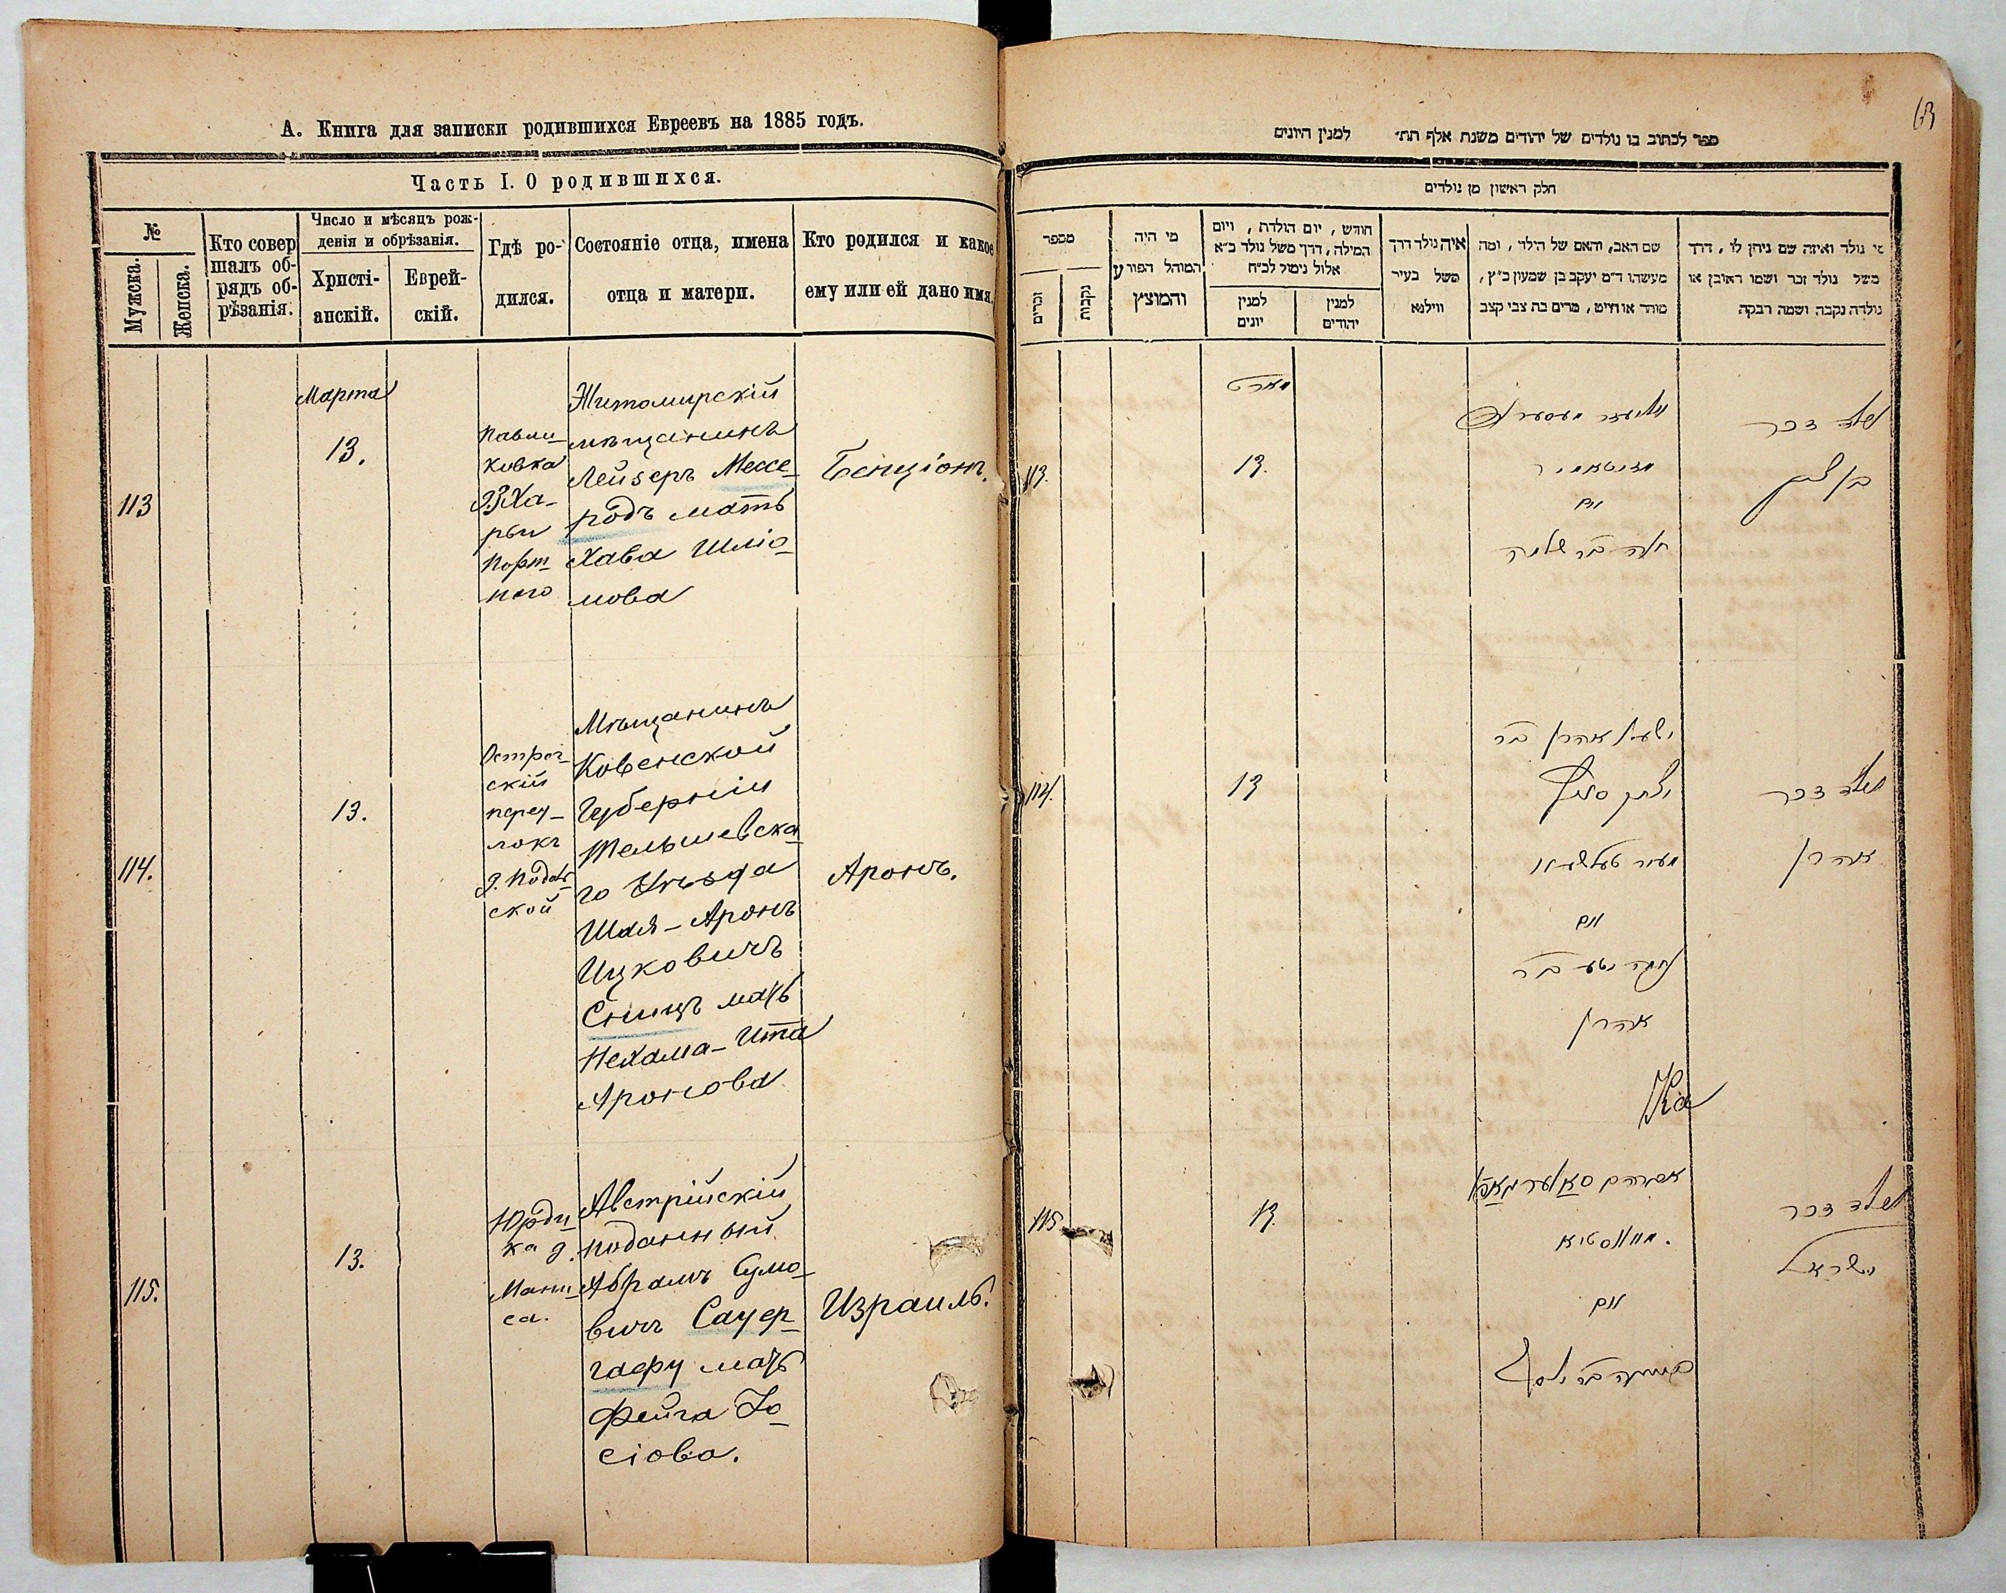 А. Книга для записки родившихся Евреевъ на 1885 годъ.
Часть I. О родившихся.
№
Мужска.
Женска.
Кто совер
шалъ об-
рядъ об-
рѣзанія.
Число и мѣсяцъ рож-
денія и обрѣзанія.
Христі-
анскій.
Еврей-
скій.
Гдѣ ро-
дился.
Состояніе отца, имена
отца и матери.
Кто родился и какое
ему или ей дано имя.
113
Марта
13.
Павли-
ковка
Ха-
ры
Порт-
ного
Житомирскій
мѣщанинъ
Лейзеръ Мессе-
родъ мать
Хава Шліо-
мова
Бенціонъ.
114.
13.
Острог-
скій
переу-
локъ
д. Подоль-
ской
Мѣщанинъ
Ковенской
Губерніи
Тельшевска
го Уѣзда
Шая-Аронъ
Ицковичъ
Сницъ мать
Нехама-Ита
Аронова
Аронъ.
115.
13.
Юрди-
ка д.
Мани-
са.
Австрійскій
подданный
Абрамъ Сумо-
вичъ Сауер-
гафу мать
Фейга Іо-
сіова.
Израиль.
63
ספר לכתוב בו נולדים של יהודים משנת אלף תת״ למנין היונים
חלק ראשון מן נולדים
מספר
זכרים
נקבות
מי היה
המוהל הפורע
והמוצץ
חודש, יום הולדת, ויום
המילה, דרך משל נולד כ״א
אלול נימול לכ״ח
למנין
יונים
למנין
יהודים
איה נולד דרך
משל בעיר
ווילנא
שם האב, והאם של הילד, ומה
מעשהו ד״מ יעקב בן שמעון כ״ץ,
סוחר או חייט, מרים בת צבי קצב
מי נולד ואיזה שם ניתן לו, דרך
משל נולד זכר ושמו ראובן או
נולדה נקבה ושמה רבקה
113.
מארט
13.
ואם
חוה בר שלמה
נולד זכר
בן ציון
114.
13
ישעי׳ אהרן בר
יצחק
ואם
נחמה יטע בר
אהרן
נולד זכר
אהרן
115
13.
אברהם
ואם
בר יוסף
נולד זכר
ישראל